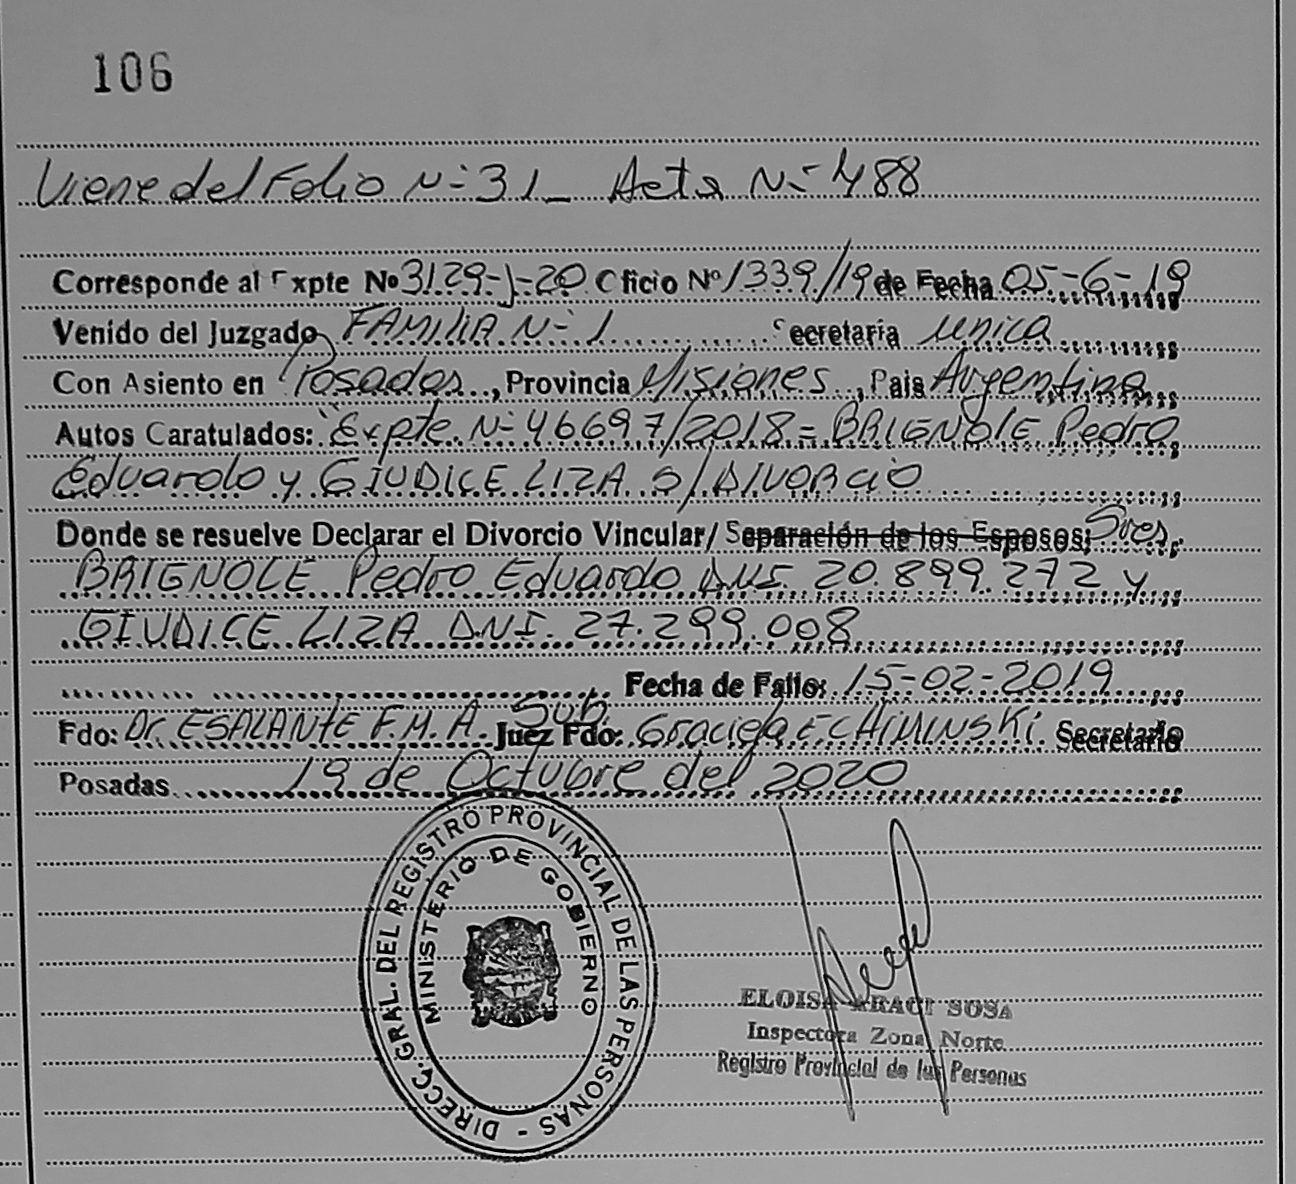 106
Viene del Folio N- 31_ Acta N- 488
Corresponde al Expte No 3129-J-20 Oficio Nº 1339/19 de Fecha 05-6-19
Venido del Juzgado FAMILIA N- 1 Secretaria unica
Con Asiento en Posadas, Provincia Misiones, Pais Argentina
Autos Caratulados: "Expte N- 46697/2018 = BRIGNOLE Pedro
Eduardo y GIUDICE LIZA S/ DIVORCIO
Donde se resuelve Declarar el Divorcio Vincular/ Separación de los Esposos; Sres.
BRIGNOLE Pedro Eduardo DNI. 20.899.272 y
GIUDICE LIZA DNI. 27.299.008
Fecha de Fallo: 15-02-2019
Fdo: Dr. ESALANTE F.M.A. Sub. Juez Fdo: Graciela E CHIMINSKI Secretario
Posadas 19 de Octubre del 2020
DIRECC. GRAL. DEL REGISTRO PROVINCIAL DE LAS PERSONAS -
MINISTERIO DE GOBIERNO
ELOISA ARACI SOSA
Inspectora Zona Norte
Registro Provincial de las Personas